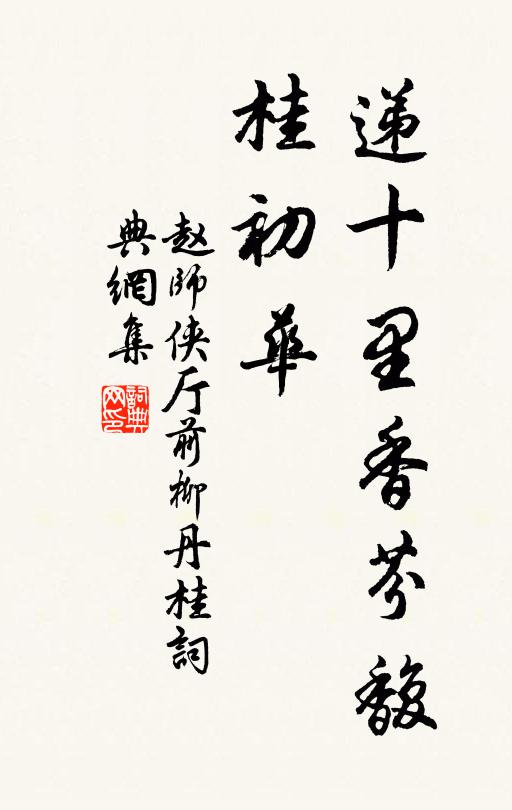 递十里香芬馥
桂初華
赵師侠厅前柳丹桂詞
典網集
詞典网印